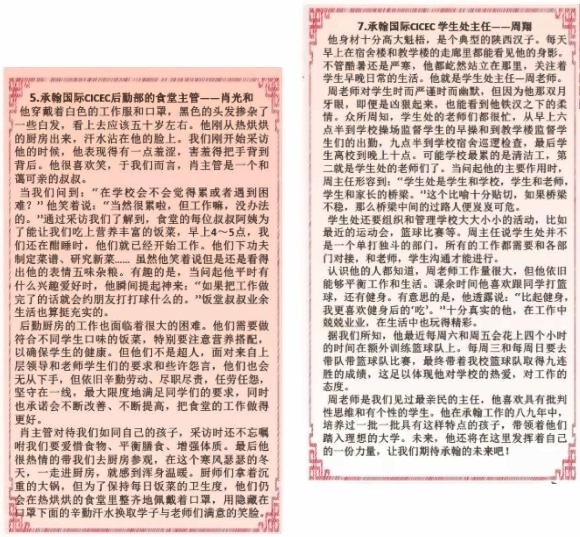 5.承翰国际CICEC后勤部的食堂主管——肖光和
他穿戴着白色的工作服和口罩，黑色的头发掺杂了
一些白发，看上去应该五十岁左右。他刚从热烘烘
的厨房出来，汗水沾在他的脸上。我们刚开始采访
他的时候，他表现得有一点羞涩，害羞得把手背到
背后。他很喜欢笑，于我们而言，肖主管是一个和
蔼可亲的叔叔。
当我们问到：“在学校会不会觉得累或者遇到困
难？”他笑着说：“当然很累啦，但工作嘛，没办法
的。”通过采访我们了解到，食堂的每位叔叔阿姨为
了能让我们吃上营养丰富的饭菜，早上4～5点，我
们还在酣睡时，他们就已经开始工作。他们下功夫
制定菜谱、研究新菜...... 虽然他笑着说但是还是看得
出他的表情五味杂粮。有趣的是，当问起他平时有
什么兴趣爱好时，他瞬间提起神来：“如果把工作做
完了的话就会约朋友打打球什么的。”饭堂叔叔业余
生活也算挺充实的。
后勤厨房的工作也面临着很大的困难。他们需要做
符合不同学生口味的饭菜，特别要注意营养搭配，
以确保学生的健康。但他们不是超人，面对来自上
层领导和老师学生们的要求和些许怨言，他们也会
无从下手，但依旧辛勤劳动、尽职尽责，任劳任怨，
坚守在一线，最大限度地满足同学们的要求，同时
也承诺会不断改善、不断提高，把食堂的工作做得
更好。
肖主管对待我们如同自己的孩子，采访时还不忘嘱
咐我们要爱惜食物、平衡膳食、增强体质。最后他
很热情的带我们去厨房参观，在这个寒风瑟瑟的冬
天，一走进厨房，就感到浑身温暖。厨师们拿着沉
重的大锅，但为了保持每日饭菜的卫生度，他们仍
会在热烘烘的食堂里整齐地佩戴着口罩，用隐藏在
口罩下面的辛勤汗水换取学子与老师们满意的笑脸。
7.承翰国际CICEC 学生处主任——周翔
他身材十分高大魁梧，是个典型的陕西汉子。每天
早上在宿舍楼和教学楼的走廊里都能看见他的身影。
不管酷暑还是严寒，他都屹然站立在那里，关注着
学生早晚日常的生活。他就是学生处主任—周老师。
周老师对学生时而严谨时而幽默，但因为他那双月
牙眼，即便是凶狠起来，也能看到他铁汉之下的柔
情。众所周知，学生处的老师们都很忙，从早上六
点半到学校操场监督学生的早操和到教学楼监督学
生们的出勤，九点半到学校宿舍巡逻检查，最后学
生离校到晚上十点。可能学校最累的是清洁工，第
二就是学生处的老师们了。当问起他的主要作用时，
周主任形容到：“学生处是学生和学校，学生和老师，
学生和家长的桥梁。”这个比喻十分贴切，如果桥梁
不稳，那么桥梁中间的过路人便岌岌可危。
学生处还要组织和管理学校大大小小的活动，比如
最近的运动会，篮球比赛等。周主任说学生处并不
是一个单打独斗的部门，所有的工作都需要和各部
门对接，和老师，学生沟通才能进行。
认识他的人都知道，周老师工作量很大，但他依旧
能够平衡工作和生活。课余时间他喜欢跟同学打篮
球，还有健身。有意思的是，他透露说：“比起健身，
我更喜欢健身后的‘吃’。”十分真实的他，在工作中
兢兢业业，在生活中也玩得精彩。
据我们所知，他最近每周六和周五会花上四个小时
的时间在额外训练篮球队上。每周三和每周日要去
带队带篮球队比赛，最终带着我校篮球队取得九连
胜的成绩，这足以体现他对学校的热爱，对工作的
态度。
周老师是我们见过最亲民的主任，他喜欢具有批判
性思维和有个性的学生。他在承翰工作的八九年中，
培养过一批一批具有这样特点的孩子，带领着他们
踏入理想的大学。未来，他还将在这里发挥着自己
的一份力量，让我们期待承翰的未来吧！